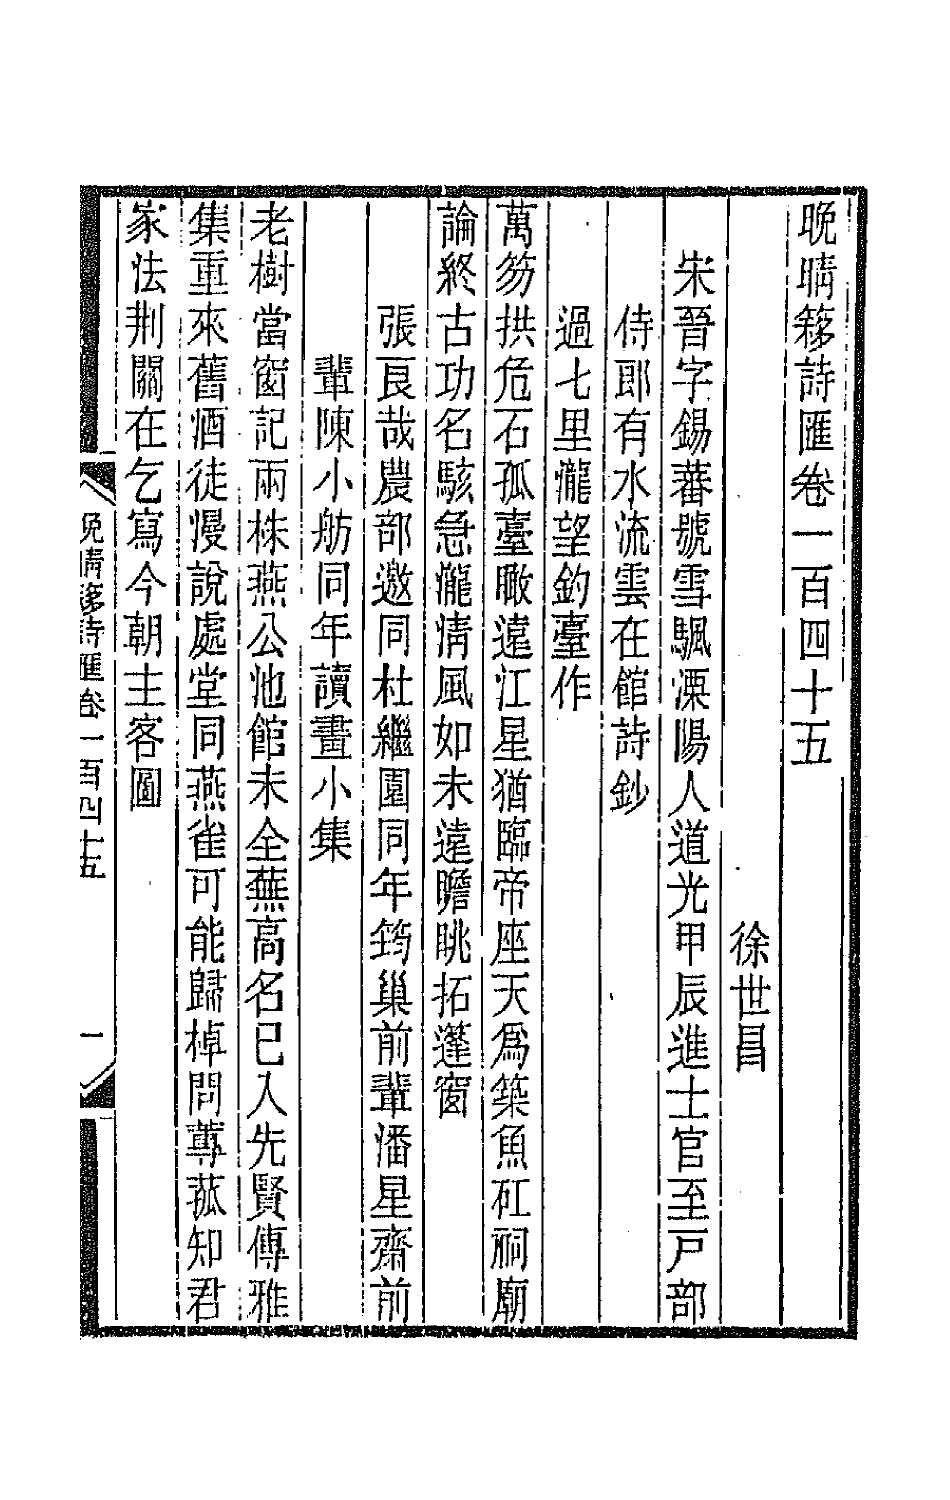 晚晴簃詩匯卷一百四十五
徐世昌
宋晉字錫蕃號雪颿溧陽人道光甲辰進士官至戸部
侍郎有水流雲在館詩鈔
過七里瀧望釣臺作
萬笏拱危石孤臺瞰遠江星猶臨帝座天爲築魚矼祠廟
論終古功名駭急瀧淸風如未遠瞻眺拓篷窗
張艮哉農部邀同杜繼園同年筠巢前輩潘星齋前
輩陳小舫同年讀畫小集
老樹當窗記兩株燕公池館未全蕪高名已入先賢傳雅
集重來舊酒徒漫說處堂同燕雀可能歸棹問蓴菰知君
家法荆關在乞寫今朝主客圖
晚晴簃詩匯卷一百四十五
一